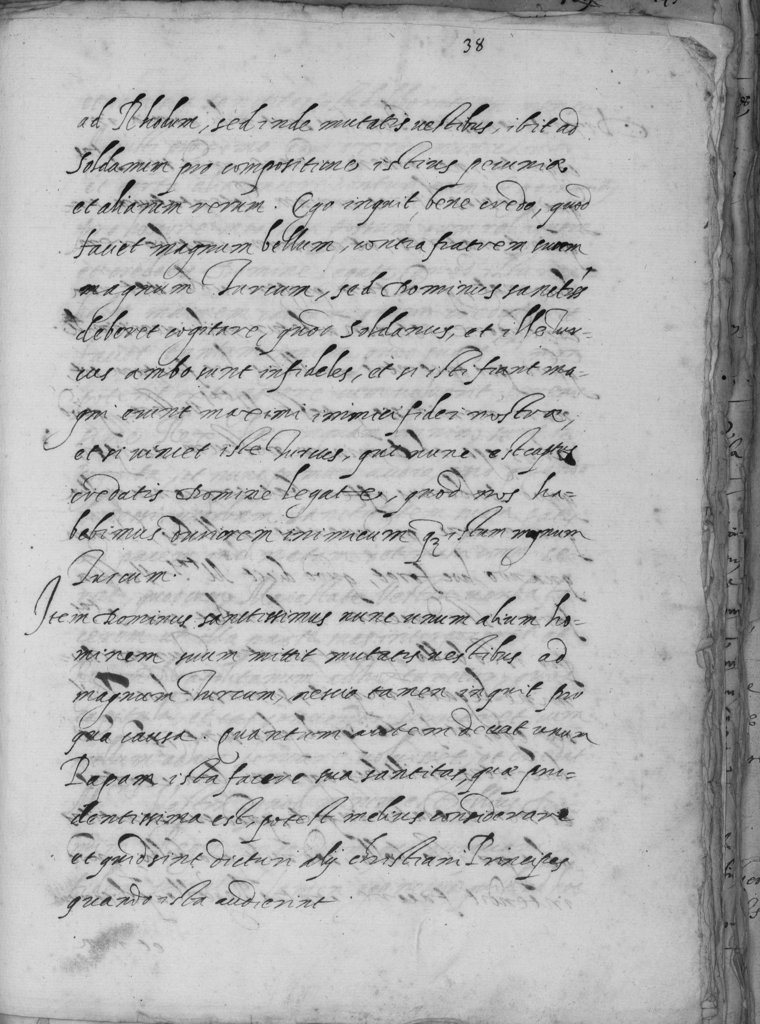 38
ad Rhodum, sed inde mutatis vestibus, ibit ad
Soldanum pro compositione istius pecuniæ
et aliarum rerum. Ego inquit, bene credo, quod
faciet magnum bellum, contra fratrem suum
magnum Turcum, sed Dominus sanctiss
deberet cogitare, quod Soldanus, et ille Tur-
cus ambo sunt infideles, et si isti fiant ma-
gni erunt maximi inimici fidei nostræ,
et si vincet iste Turcus, qui nunc est captus
credatis Domine legate, quod nos ha-
bebimus duriorem inimicum qz istum magnum
Turcum.
Item Dominus sanctissimus nunc unum alium ho-
minem suum mittit mutatis vestibus ad
magnum Turcum, nescio tamen inquit pro
qua causa. Quantum autem deceat unum
Papam ista facere sua santitas, quæ pru-
dentissima est, potest melius considerare
et quid sint dicturi alij christiani Principes
quando ista audierint.